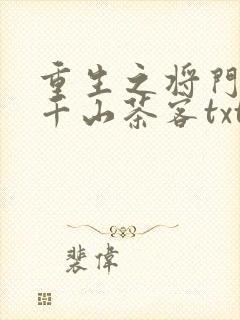 重生之将門
千山茶客txt
裴偉